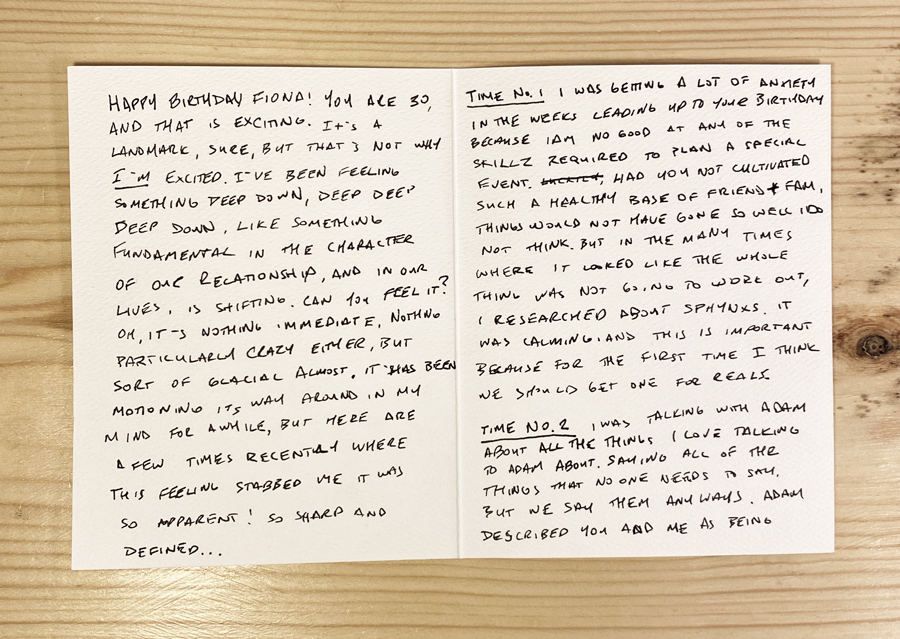 HAPPY BIRTHDAY FIONA! YOU ARE 30,
AND THAT IS EXCITING. IT'S A
LANDMARK, SURE, BUT THAT'S NOT WHY
I'M EXCITED. I'VE BEEN FEELING
SOMETHING DEEP DOWN, DEEP DEEP
DEEP DOWN, LIKE SOMETHING
FUNDAMENTAL IN THE CHARACTER
OF OUR RELATIONSHIP, AND IN OUR
LIVES, IS SHIFTING. CAN YOU FEEL IT?
OH, IT'S NOTHING IMMEDIATE, NOTHING
PARTICULARLY CRAZY EITHER, BUT
SORT OF GLACIAL ALMOST. IT HAS BEEN
MOTIONING ITS WAY AROUND IN MY
MIND FOR AWHILE, BUT HERE ARE
A FEW TIMES RECENTLY WHERE
THIS FEELING STABBED ME IT WAS
SO APPARENT! SO SHARP AND
DEFINED...
TIME NO. 1 I WAS GETTING A LOT OF ANXIETY
IN THE WEEKS LEADING UP TO YOUR BIRTHDAY
BECAUSE I AM NO GOOD AT ANY OF THE
SKILLZ REQUIRED TO PLAN A SPECIAL
EVENT. HAD YOU NOT CULTIVATED
SUCH A HEALTHY BASE OF FRIEND + FAM,
THINGS WOULD NOT HAVE GONE SO WELL I DO
NOT THINK. BUT IN THE MANY TIMES
WHERE IT LOOKED LIKE THE WHOLE
THING WAS NOT GOING TO WORK OUT,
I RESEARCHED ABOUT SPHYNXS. IT
WAS CALMING, AND THIS IS IMPORTANT
BECAUSE FOR THE FIRST TIME I THINK
WE SHOULD GET ONE FOR REALS.
TIME NO. 2 I WAS TALKING WITH ADAM
ABOUT ALL THE THINGS I LOVE TALKING
TO ADAM ABOUT. SAYING ALL OF THE
THINGS THAT NO ONE NEEDS TO SAY.
BUT WE SAY THEM ANYWAYS. ADAM
DESCRIBED YOU AND ME AS BEING